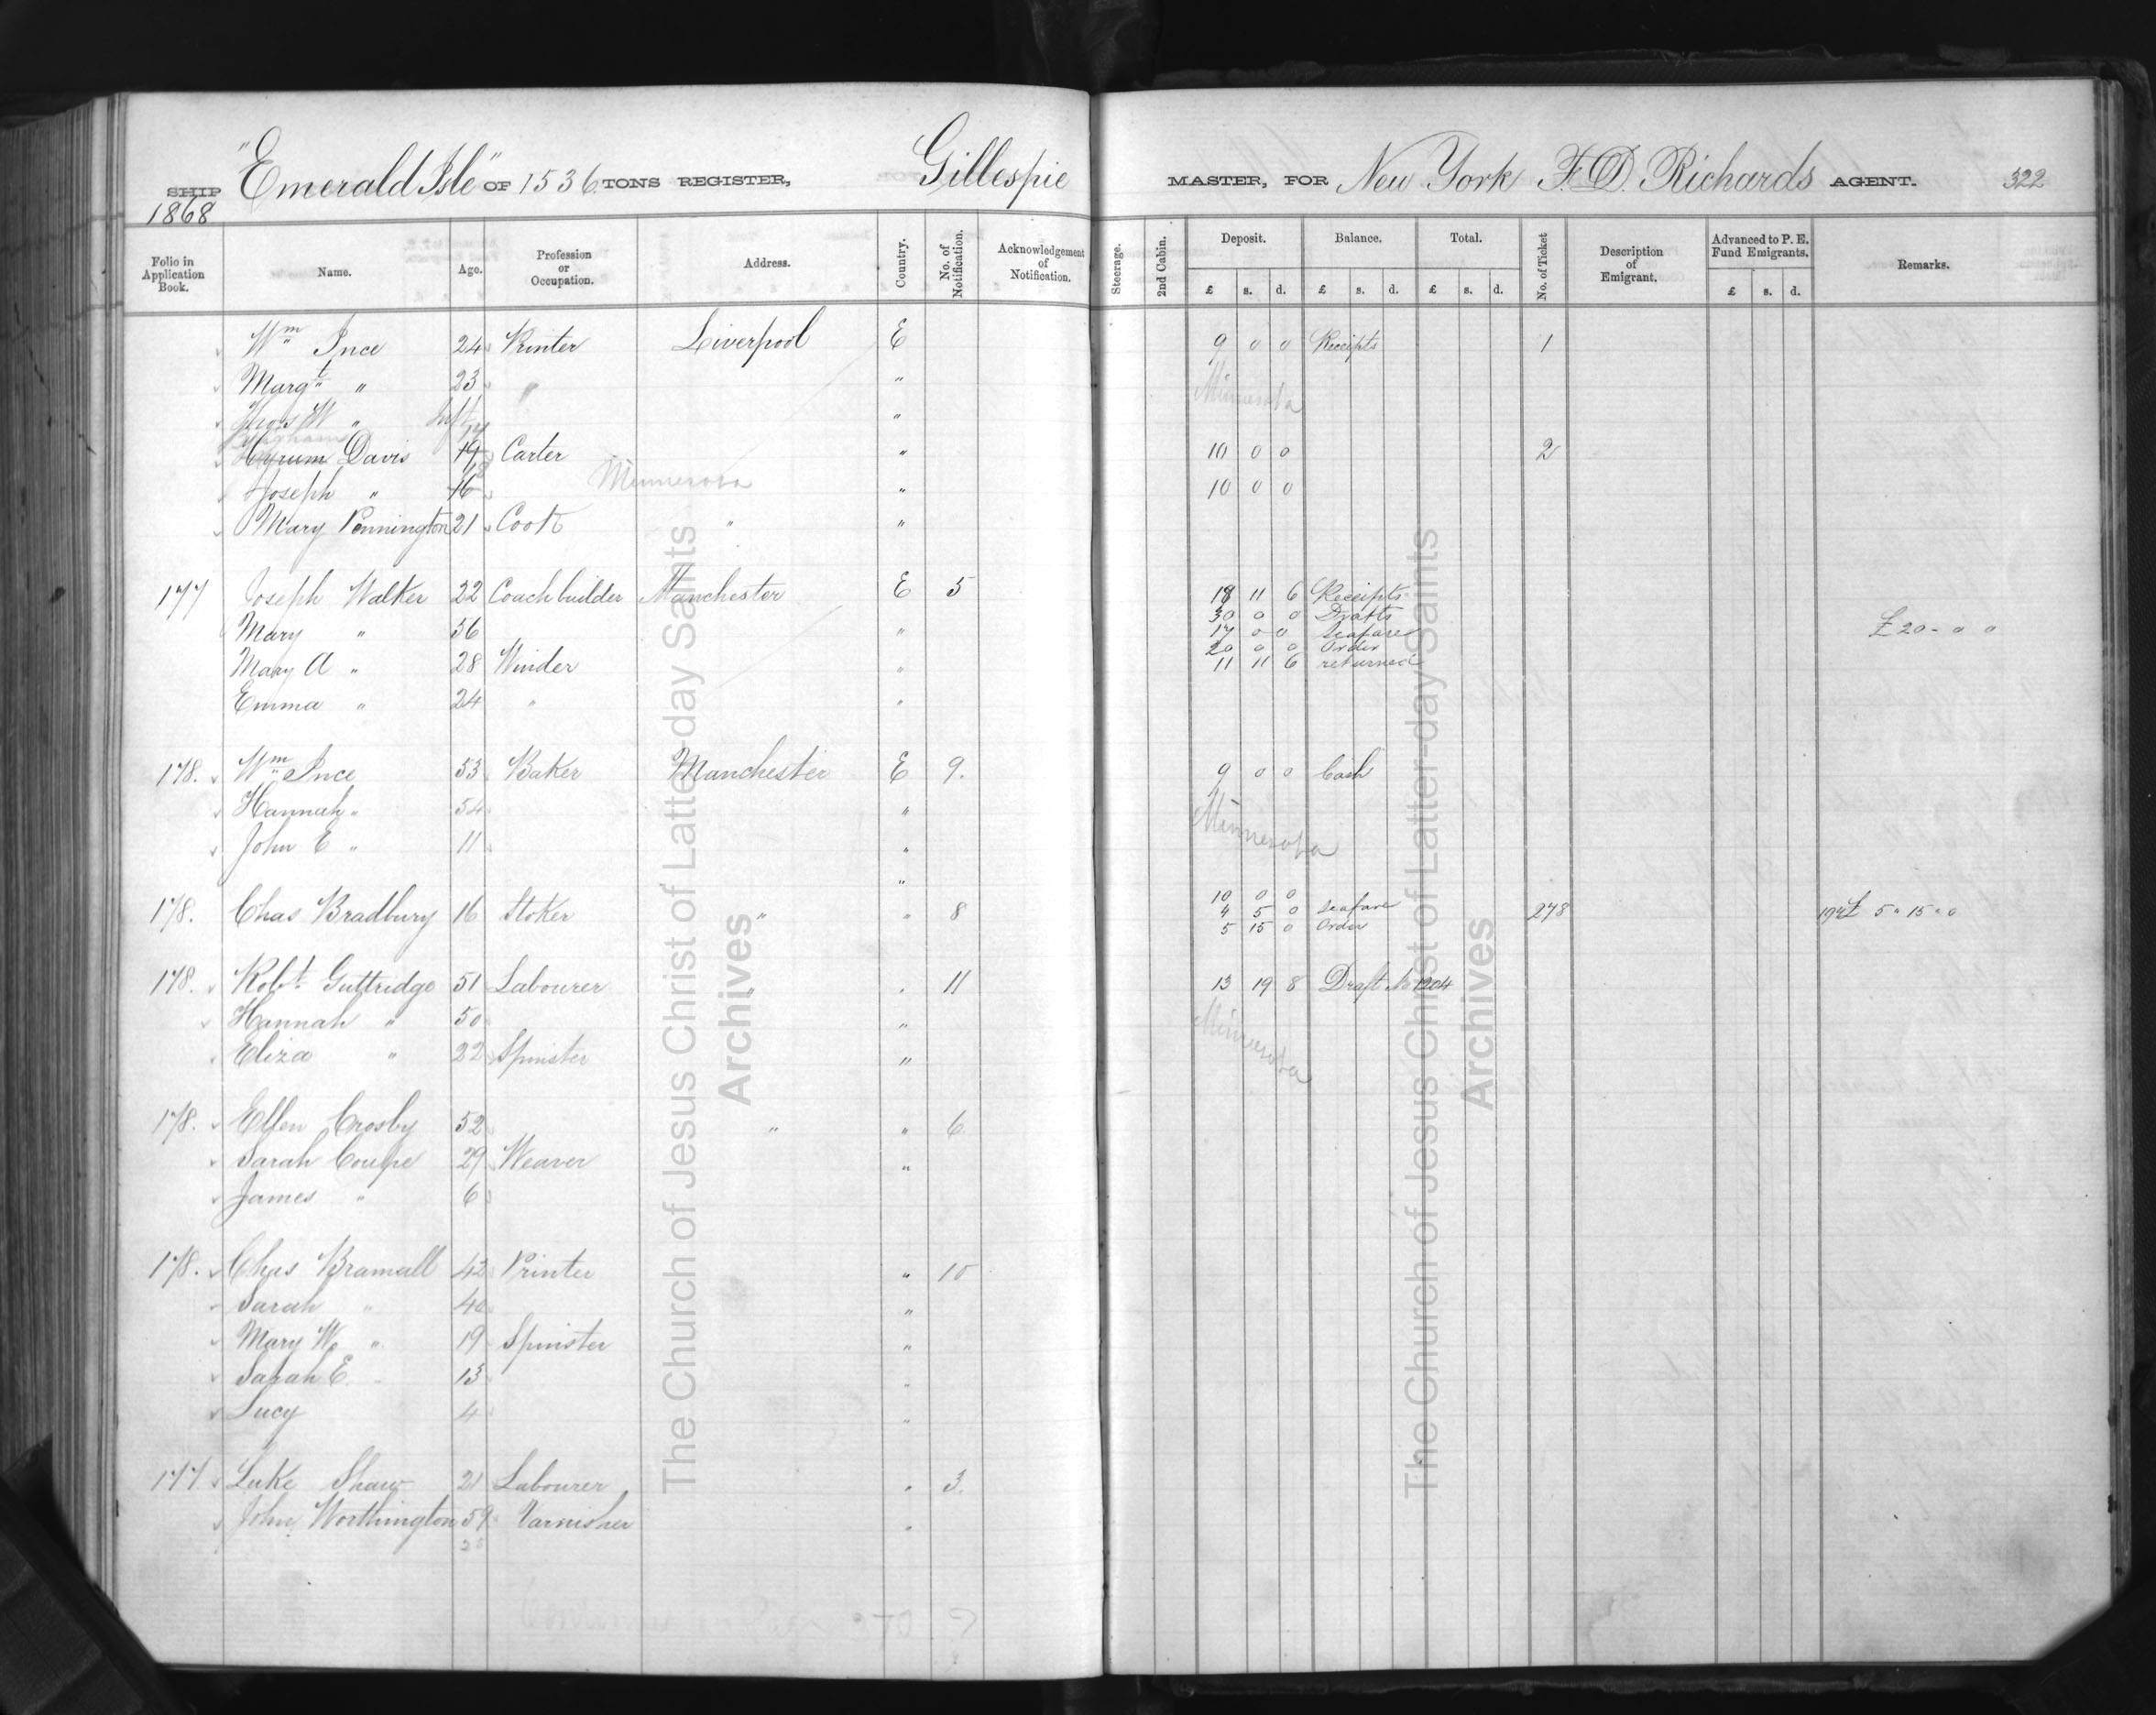 SHIP "Emerald Isle" OF 1536 TONS REGISTER, Gillespie MASTER, FOR New York F. D. Richards AGENT. 322
1868
Folio in Application Book. Name. Age. Profession or Occupation. Address. Country. No. of Notification. Acknowledgement of Notification. Steerage. 2nd Cabin. Deposit. Balance. Total. No. of Ticket Description of Emigrant. Advanced to P. E. Fund Emigrants. Remarks.
£ s. d. £ s. d. £ s. d. £ s. d.
Wm Ince 24 Printer Liverpool E 9 0 0 Receipts 1
Margt " 23 " " Minnesota
W " Inft "
Hyrum Davis 19 Carter " 10 0 0 2
Joseph " 16 Minnesota " 10 0 0
Mary Pennington 21 Cook " "
177 Joseph Walker 22 Coachbuilder Manchester E 5 18 11 6 Receipts
30 0 0 Drafts
Mary " 56 " 17 0 0 Seafare £20 - 0 0
20 0 0 Order
Mary A " 28 Winder " 11 11 6 returned
Emma " 24 " "
178. Wm Ince 53 Baker Manchester E 9. 9 0 0 Cash
Hannah " 54 " Minnesota
John E " 11 "
"
10 0 0
178. Chas Bradbury 16 Stoker " " 8 4 5 0 Seafare 278 £ 5 " 15 " 0
5 15 0 Order
178. Robt Guttridge 51 Labourer " " 11 13 19 8 Draft No 1204
Hannah " 50 " Minnesota
Eliza " 22 Spinster "
178. Ellen Crosby 52 " " 6
Sarah Coupe 29 Weaver "
James " 6
178. Chas Bramall 42 Printer " 10
Sarah " 40 "
Mary W. " 19 Spinster "
Sarah E. 13 "
Lucy 4 "
177 Luke Shaw 21 Labourer " 3.
John Worthington 59 Varnisher "
25
The Church of Jesus Christ of Latter-day Saints
Archives
The Church of Jesus Christ of Latter-day Saints
Archives